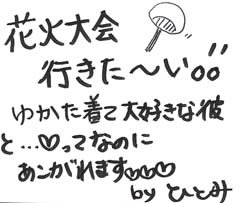 花火大会
行きた〜い。。
ゆかた着て大好きな彼
と…♡ってなのに
あこがれます♡♡♡
by ひとみ